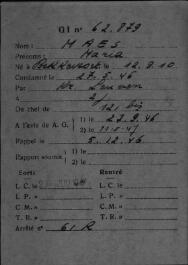 Q I n° 62.879
Nom : MAES
Prénoms : Maria
Né à le 12.8.10
Condamné le 27.5.46
Par Kr. Leuven
À 2 j
De chef de 121 bis
A l'avis de A. G. 1) le 23.9.46
2) le 11-1-47
Rappel le 5.12.46
Rapport soumis 1) le
2) le
Sortie Rentré
L. C. le L. C. le
L. P. » L. P. »
C. M. » C. M. »
T. R. » T. R. »
Arrêté n° 61 R